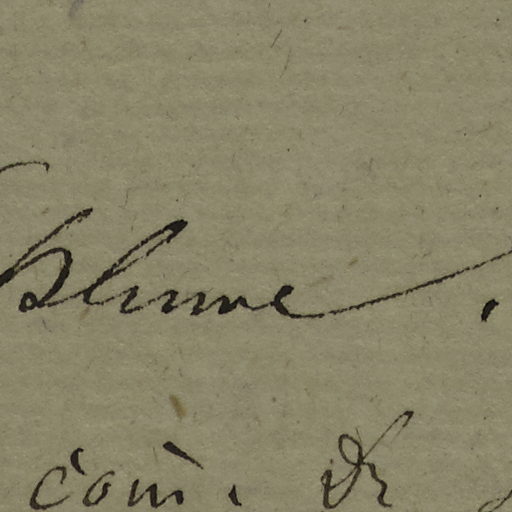 Blume.
com̄. Dr